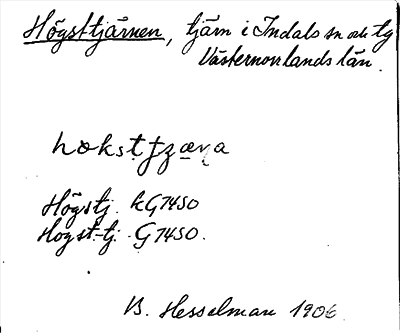 Högsttjärnen, tjärn i Indals sn och tg
Västernorrlands län.
hokstʈʒæɳa
Högstj. kG7450
Hogst-tj. G7450.
B. Hesselman 1906